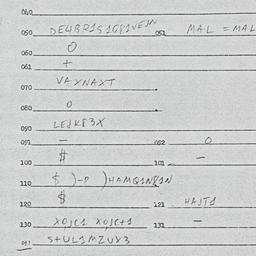 040
050 DE4BR1S1G81VEJN 051 MAL = MAL
060 O
061 +
070 VAXNAXT
080 O
090 LEJKP3X
091 — 092 O
100 $ 101 —
110 $ )-P )HAMQ1N81N
120 $ 121 HAJT1
130 XOJC1 XOJC+1 131 —
S+UL1MZUX3